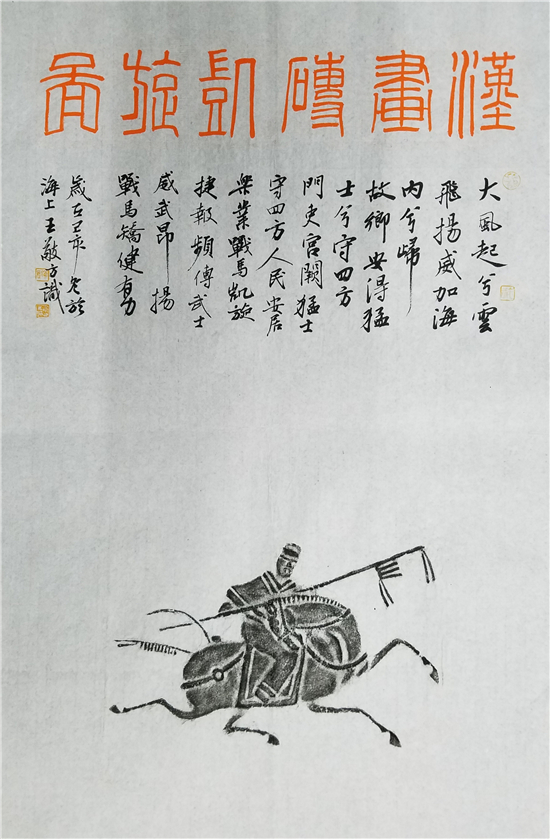 漢畫磚凱旋圖
大風起兮雲
飛揚威加海
内兮歸
故鄉安得猛
士兮守四方
門吏宮闕猛士
守四方人民安居
樂業戰馬凱旋
捷報頻傳武士
威武昂揚
戰馬矯健有力
歲在己亥冬於
海上王敬方識